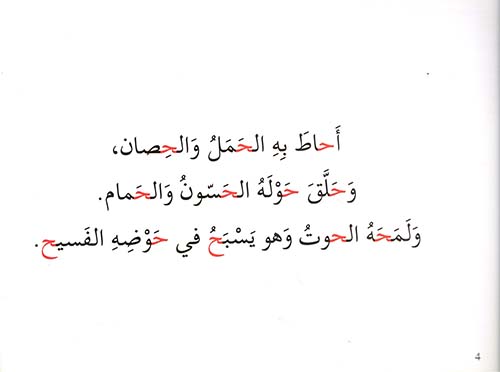 أَحاطَ بِهِ الحَمَلُ وَالحِصان،
وَحَلَّقَ حَوْلَهُ الحَسّونُ وَالحَمام.
وَلَمَحَهُ الحوتُ وَهو يَسْبَحُ في حَوْضِهِ الفَسيح.
4